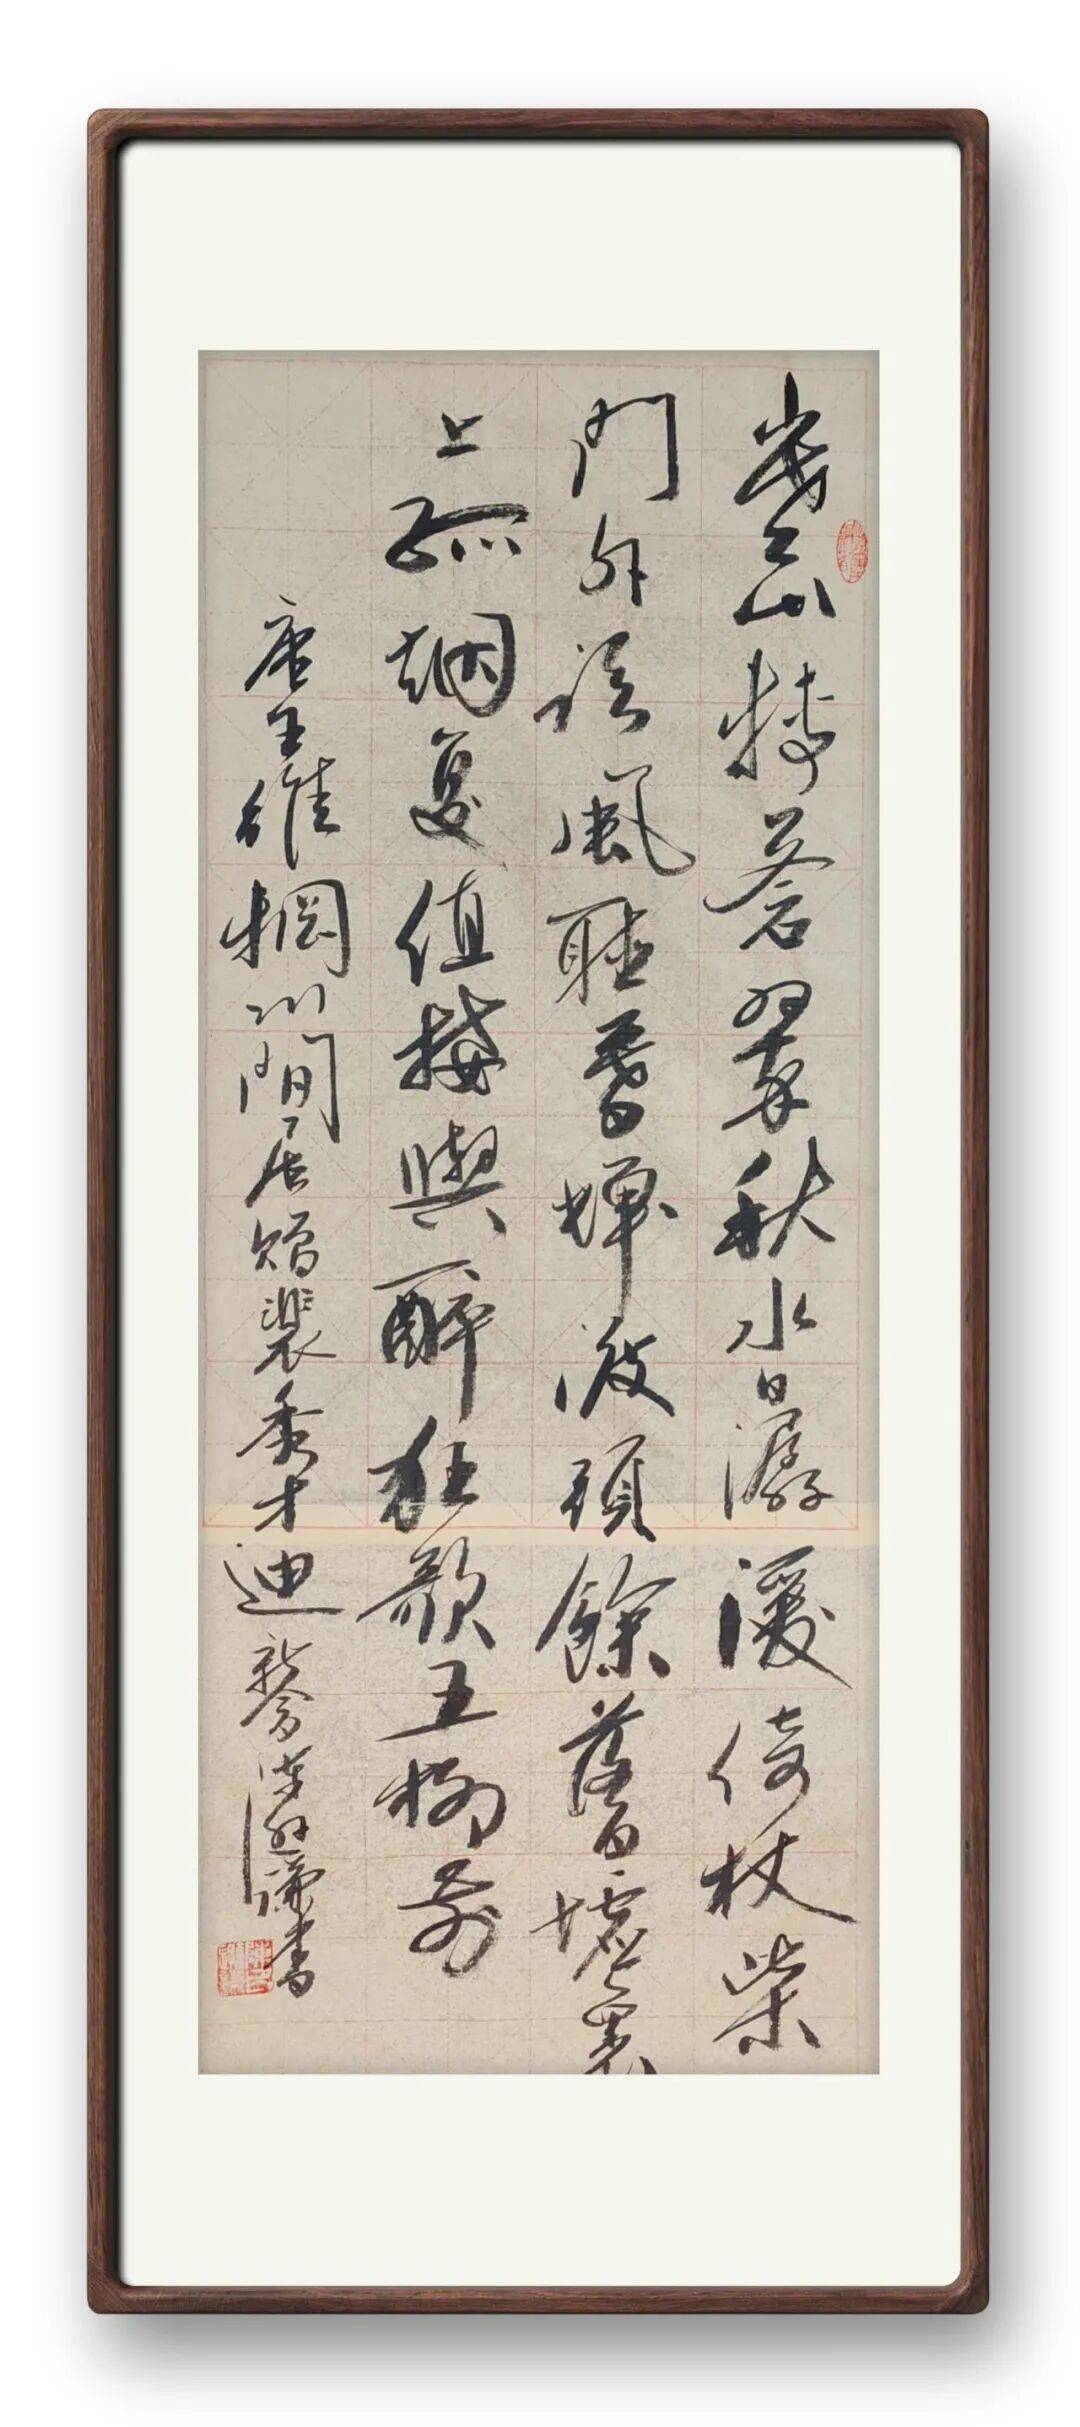 寒山轉蒼翠秋水日潺湲倚杖柴
門外臨風聽暮蟬渡頭餘落日墟裏
上孤烟复值接輿醉狂歌五柳前
唐王維輞川閒居贈裴秀才迪 書